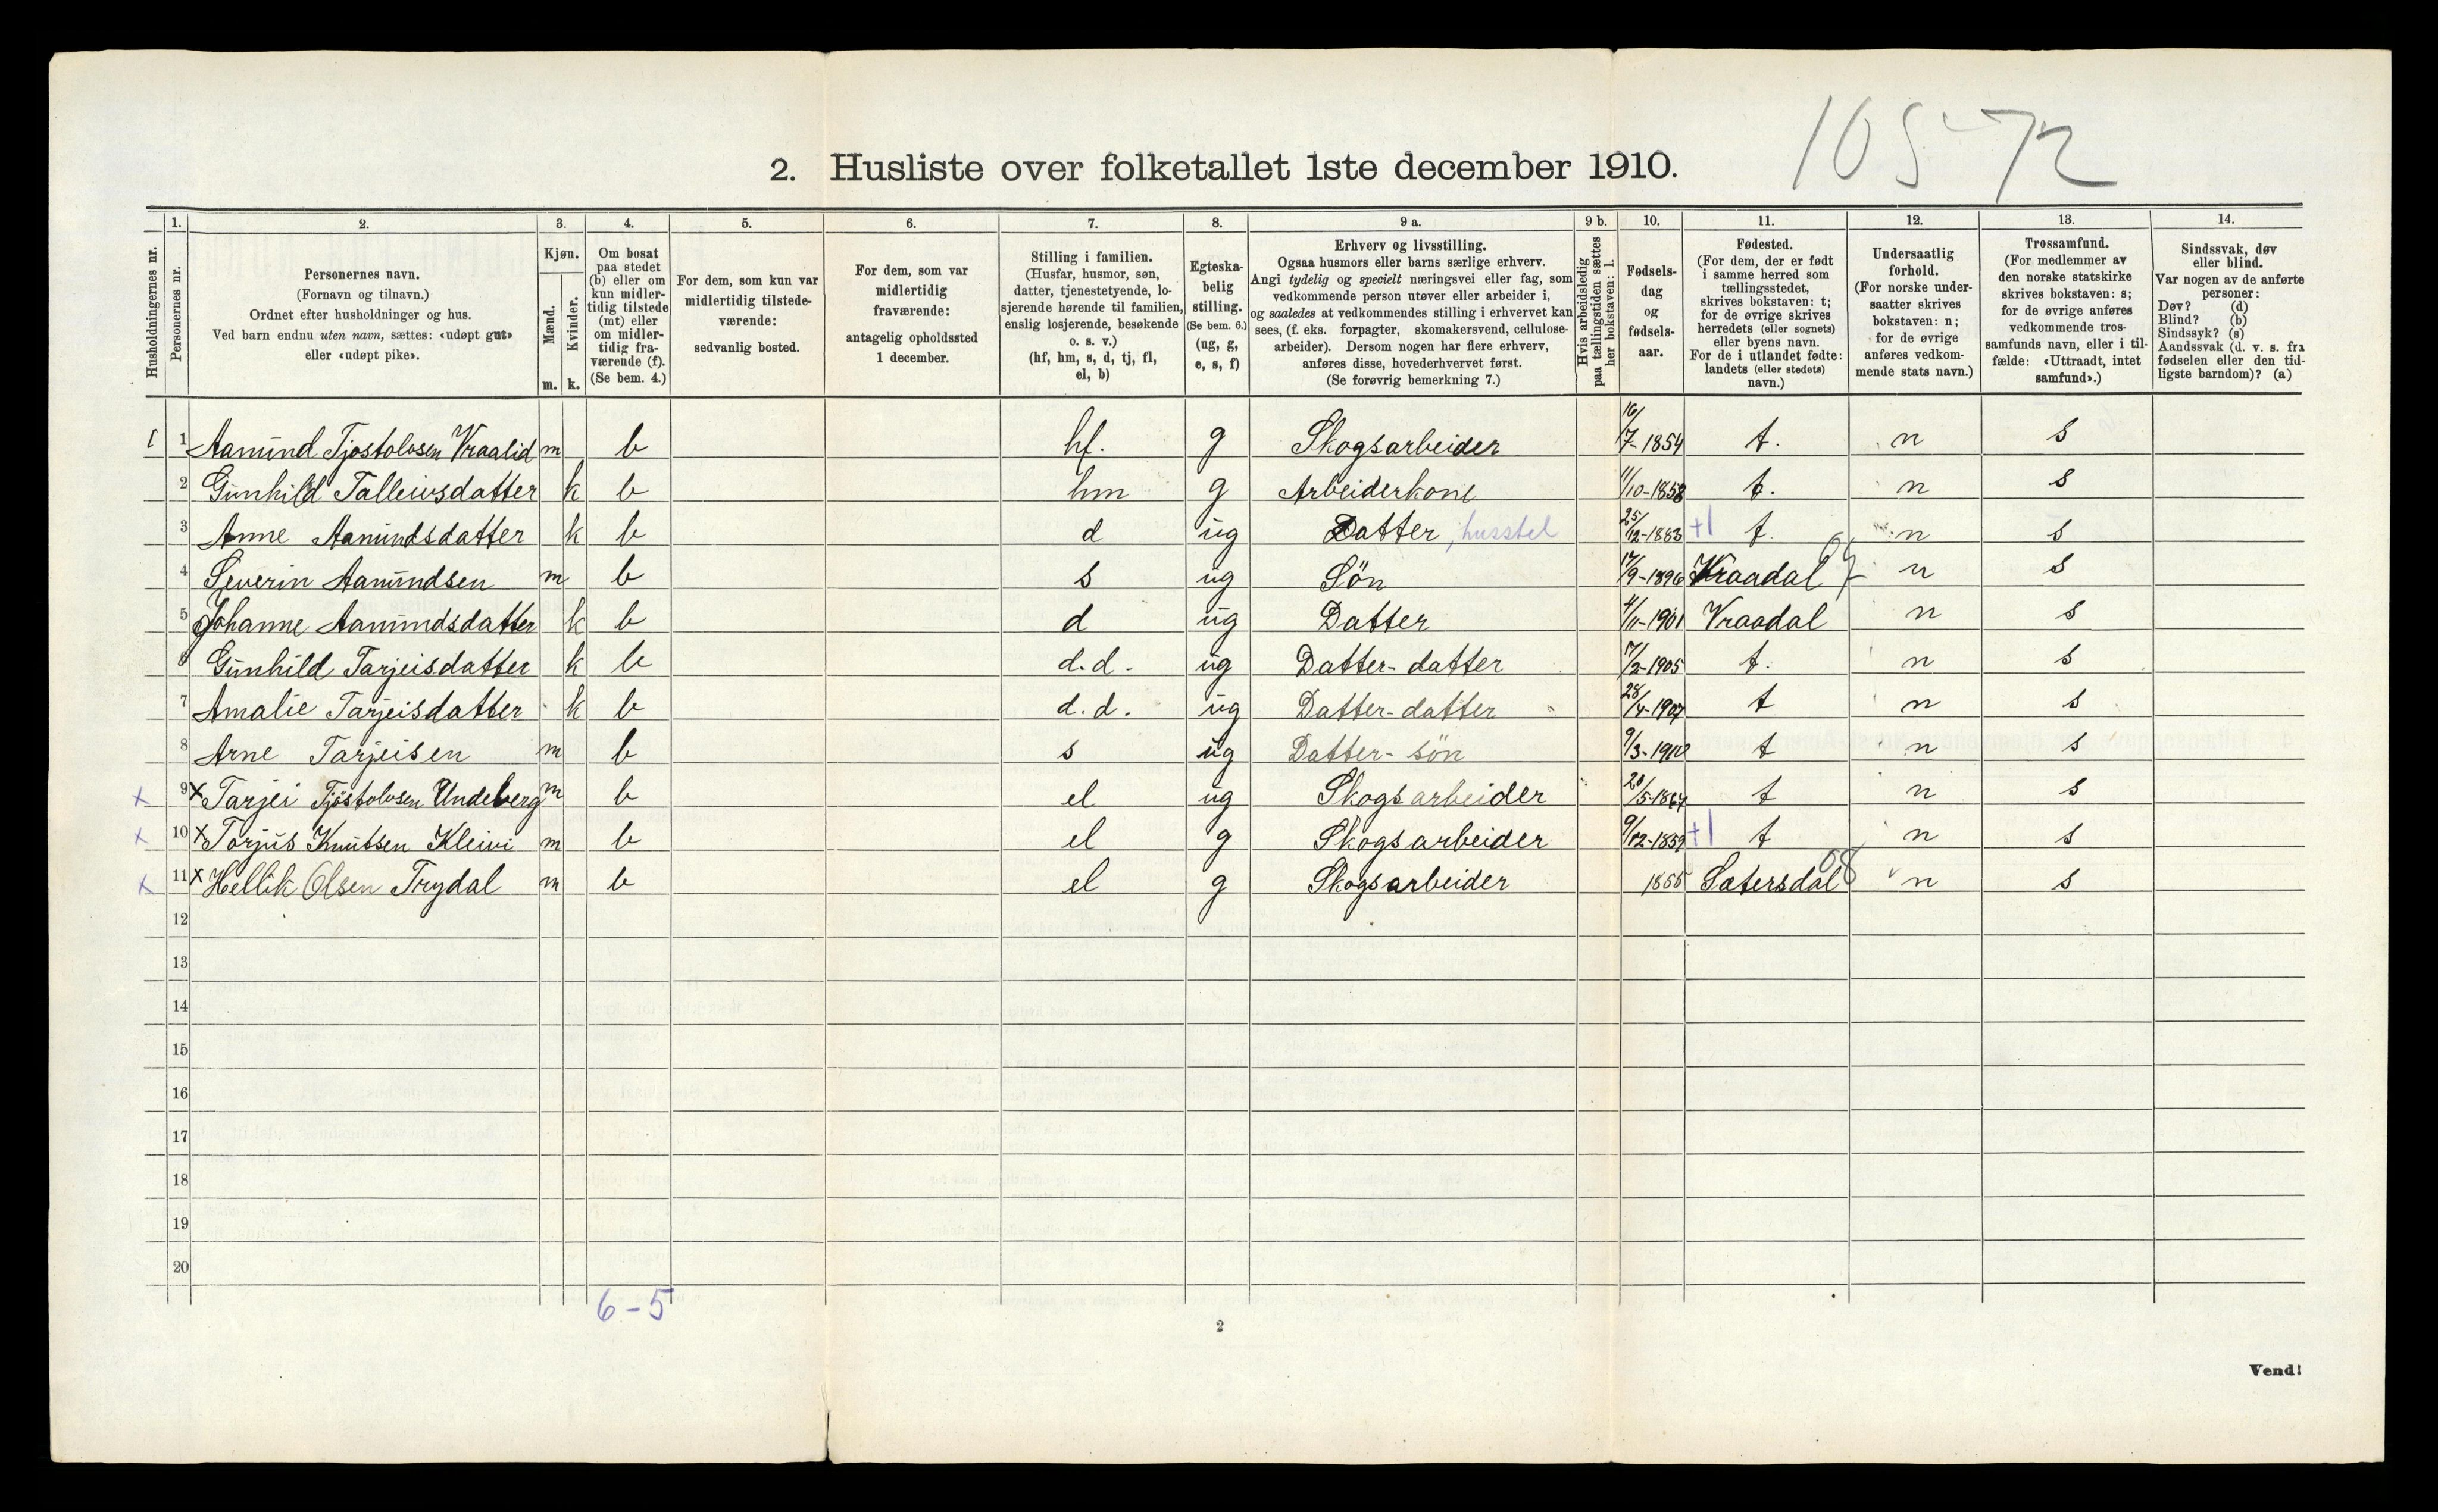 105-72
2. Husliste over folketallet 1ste december 1910.
1. 2. 3. 4. 5. 6. 7. 8. 9 a. 9 b. 10. 11. 12. 13. 14.
Husholdningernes nr.
Personernes nr.
Personernes navn.
(Fornavn og tilnavn.)
Ordnet efter husholdninger og hus.
Ved barn endnu uten navn, sættes: «udøpt gut»
eller «udøpt pike».
Kjøn.
Mænd.
Kvinder.
m. k.
Om bosat
paa stedet
(b) eller om
kun midler-
tidig tilstede
(mt) eller
om midler-
tidig fra-
værende (f).
(Se bem. 4.)
For dem, som kun var
midlertidig tilstede-
værende:
sedvanlig bosted.
For dem, som var
midlertidig
fraværende:
antagelig opholdssted
1 december.
Stilling i familien.
(Husfar, husmor, søn,
datter, tjenestetyende, lo-
sjerende hørende til familien,
enslig losjerende, besøkende
o. s. v.)
(hf, hm, s, d, tj, fl,
el, b)
Egteska-
belig
stilling.
(Se bem. 6.)
(ug, g,
e, s, f)
Erhverv og livsstilling.
Ogsaa husmors eller barns særlige erhverv.
Angi tydelig og specielt næringsvei eller fag, som
vedkommende person utøver eller arbeider i,
og saaledes at vedkommendes stilling i erhvervet kan
sees, (f. eks. forpagter, skomakersvend, cellulose-
arbeider). Dersom nogen har flere erhverv,
anføres disse, hovederhvervet først.
(Se forøvrig bemerkning 7.)
Hvis arbeidsledig
paa tællingstiden sættes
her bokstaven: l.
Fødsels-
dag
og
fødsels-
aar.
Fødested.
(For dem, der er født
i samme herred som
tællingsstedet,
skrives bokstaven: t;
for de øvrige skrives
herredets (eller sognets)
eller byens navn.
For de i utlandet fødte:
landets (eller stedets)
navn.)
Undersaatlig
forhold.
(For norske under-
saatter skrives
bokstaven: n;
for de øvrige
anføres vedkom-
mende stats navn.)
Trossamfund.
(For medlemmer av
den norske statskirke
skrives bokstaven: s;
for de øvrige anføres
vedkommende tros-
samfunds navn, eller i til-
fælde: «Uttraadt, intet
samfund».)
Sindssvak, døv
eller blind.
Var nogen av de anførte
personer:
Døv? (d)
Blind? (b)
Sindssyk? (s)
Aandssvak (d. v. s. fra
fødselen eller den tid-
ligste barndom)? (a)
1 1 Aamund Tjostolvsen Vraalid m b hf. g Skogsarbeider 16/7-1854 t. n s
2 Gunhild Talleivsdatter k b hm g Arbeiderkone 11/10-1858 t. n s
3 Anne Aamundsdatter k b d ug Datter, husstel 25/12-1883 +1 t n s
4 Severin Aamundsen m b s ug Sön 17/9-1896 Vraadal n s
5 Johanne Aamundsdatter k b d ug Datter 4/11-1901 Vraadal n s
6 Gunhild Tarjeisdatter k b d.d. ug Datter-datter 17/2-1905 t. n s
7 Amalie Tarjeisdatter k b d.d. ug Datter-datter 28/4-1907 t n s
8 Arne Tarjeisen m b s ug Datter-sön 9/3-1910 t n s
x 9 x Tarjei Tjöstolvsen Undeberg m b el ug Skogsarbeider 20/5-1867 t n s
x 10 x Torjus Knutsen Kleivi m b el g Skogsarbeider 9/12-1859 +1 t n s
x 11 x Hellik Olsen Trydal m b el g Skogsarbeider 1855 Sætersdal 08 n s
12
13
14
15
16
17
18
19
20
6-5
2
Vend!